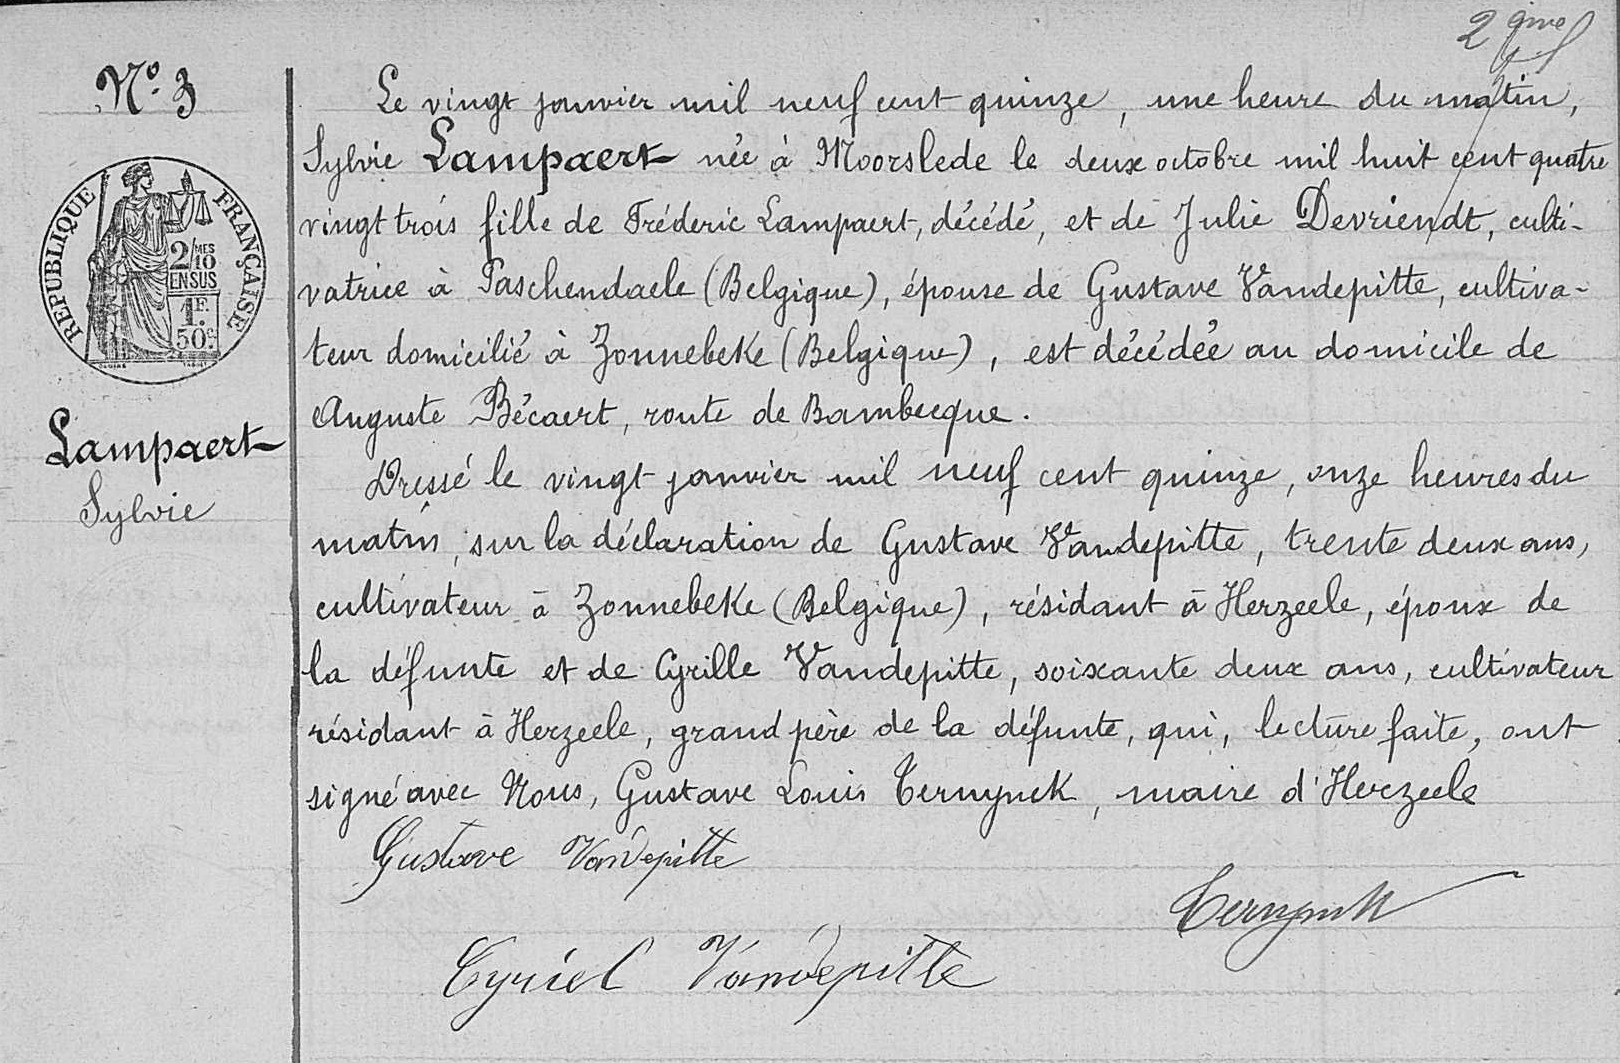 2 ème
N° 3
Le vingt janvier mil neuf cent quinze, une heure du matin,
Sylvie Lampaert née à Moorslede le deux octobre mil huit cent quatre
vingt trois fille de Fréderic Lampaert, décédé, et de Julie Devriendt, culti-
vatrice à Paschendaele (Belgique), épouse de Gustave Vandepitte, cultiva-
teur domicilié à Zonnebeke (Belgique), est décédée au domicile de
Auguste Bécaert, route de Bambecque.
Dressé le vingt janvier mil neuf cent quinze, onze heures du
matin, sur la déclaration de Gustave Vandepitte, trente deux ans,
cultivateur à Zonnebeke (Belgique), résidant à Herzeele, époux de
la défunte et de Cyrille Vandepitte, soixante deux ans, cultivateur
résidant à Herzeele, grand père de la défunte, qui, lecture faite, ont
signé avec Nous, Gustave Louis Ternynck, maire d'Herzeele
RÉPUBLIQUE FRANÇAISE
2/10 MES
EN SUS
1F.
50c.
Lampaert
Sylvie
Gustave Vandepitte
Ternynck
Cyriel Vandepitte